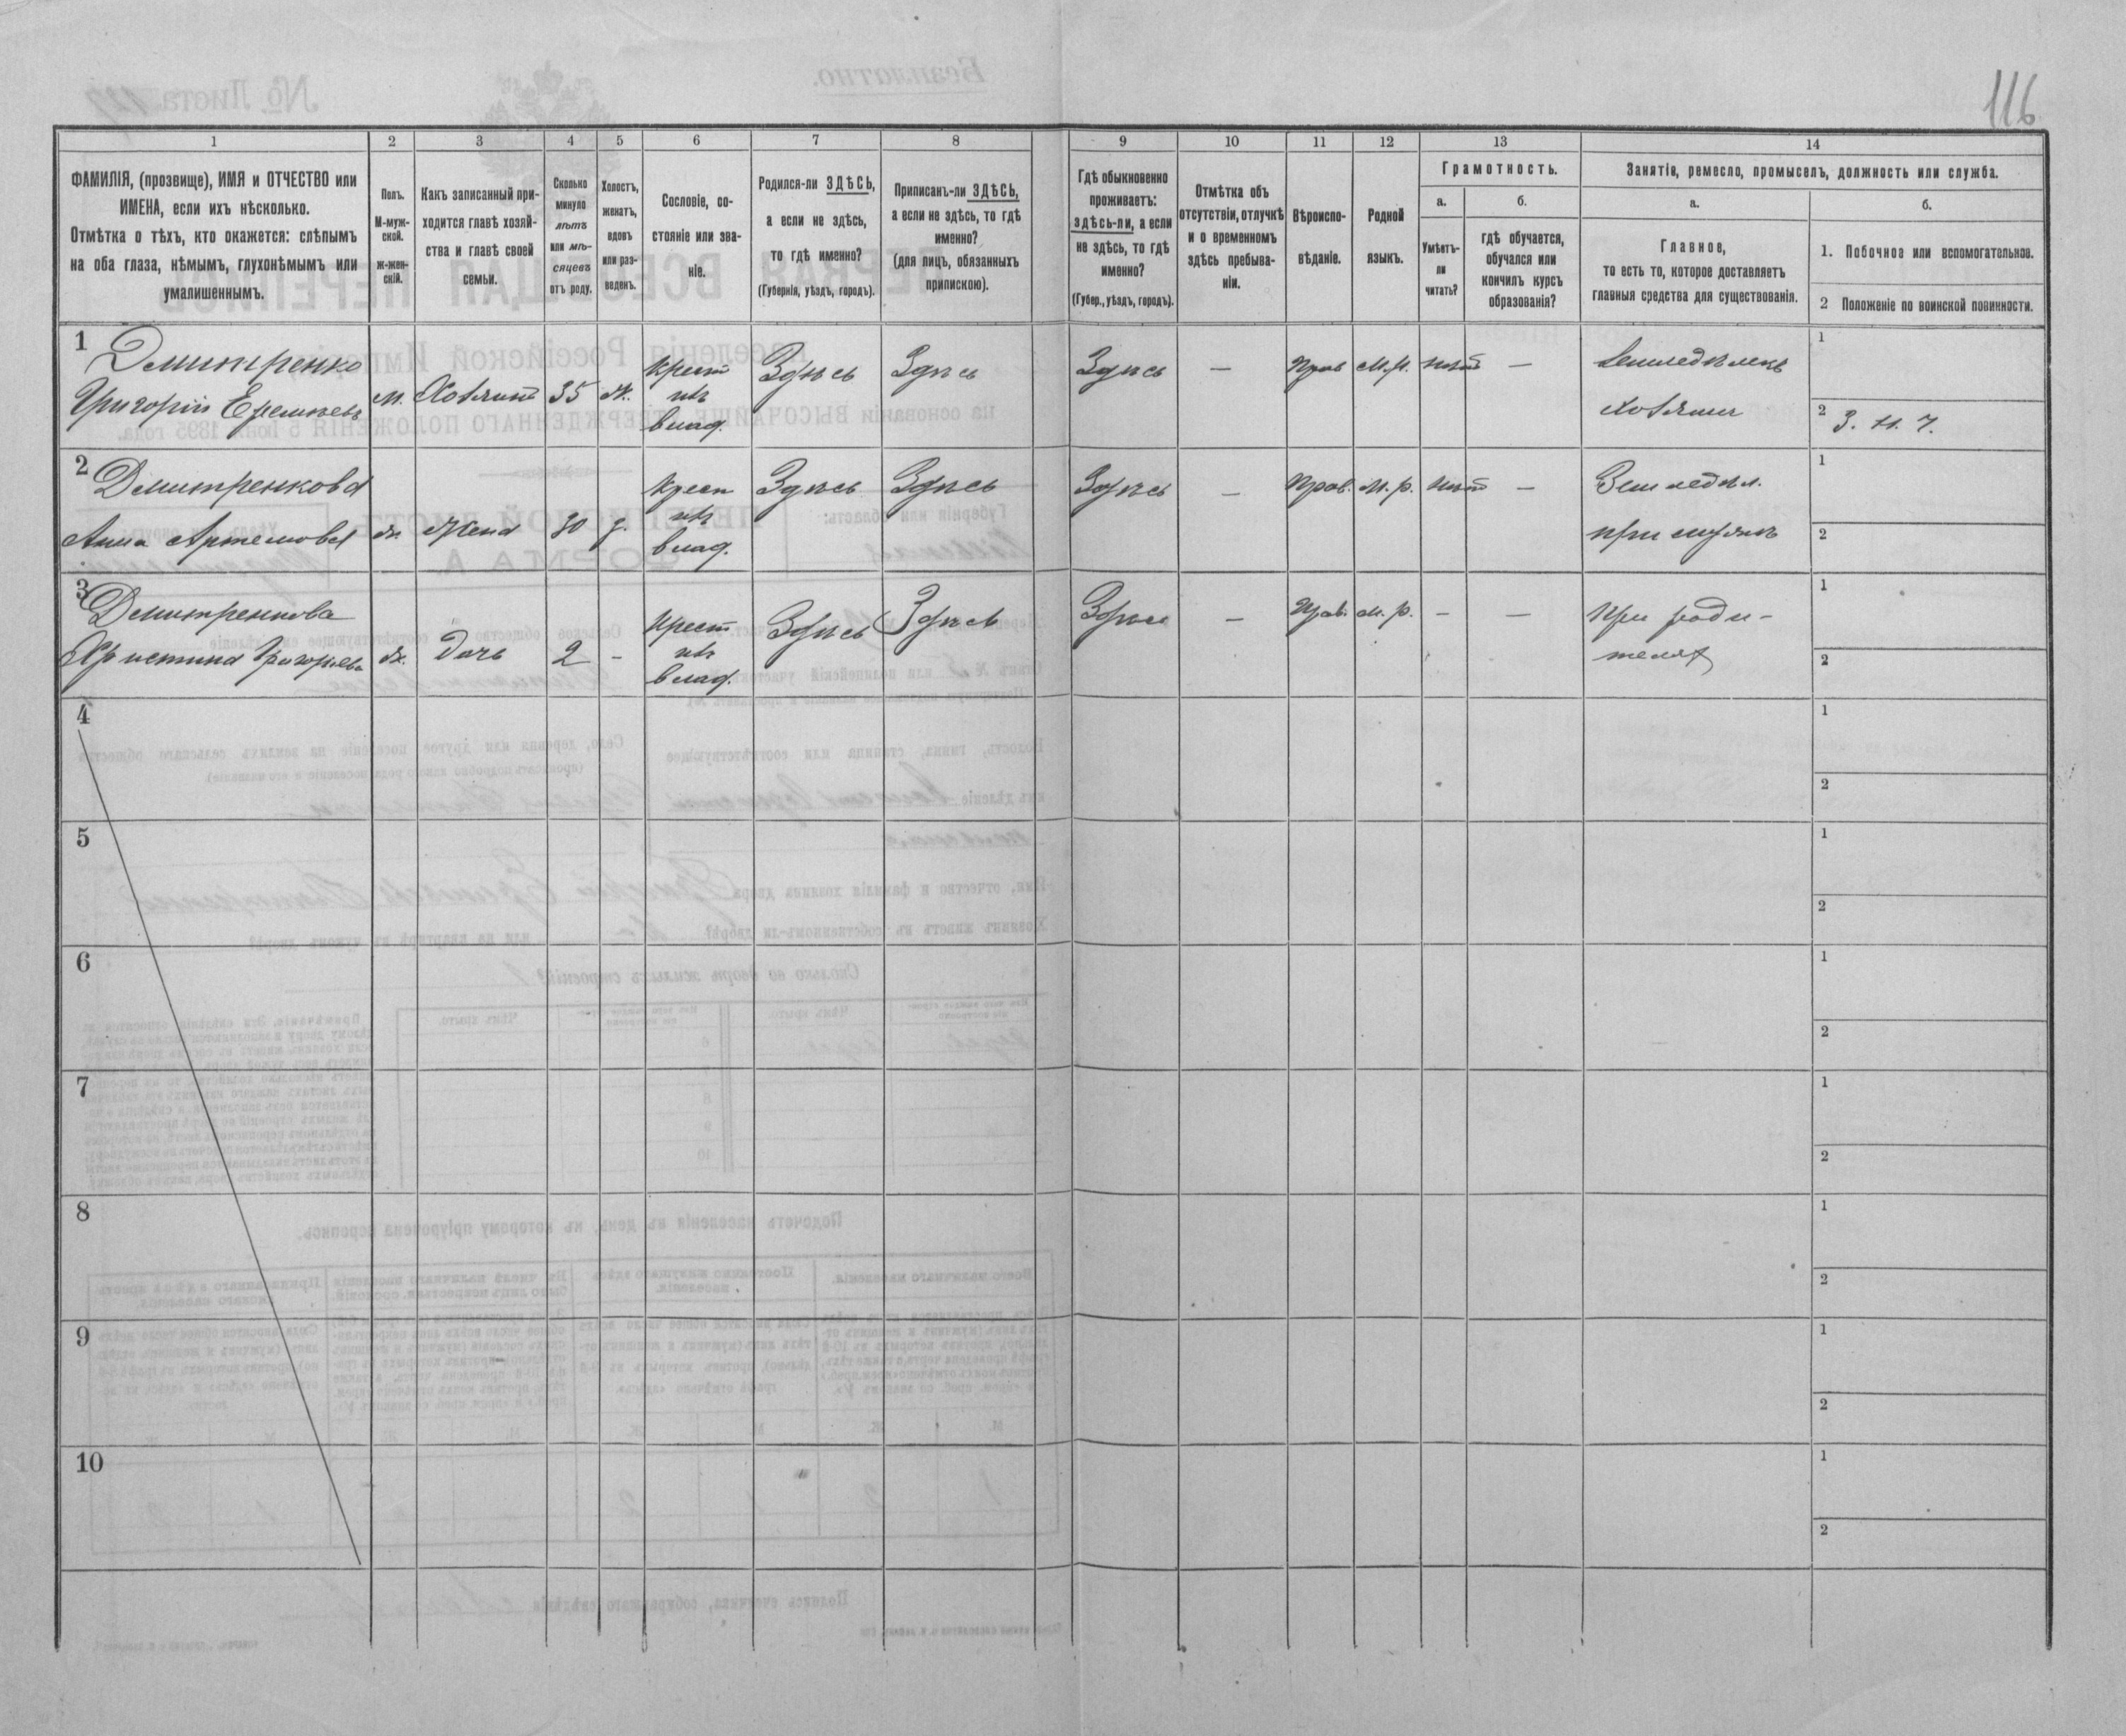 116
1
2
3
4
5
6
7
8
9
10
11
12
13
14
ФАМИЛІЯ, (прозвище), ИМЯ и ОТЧЕСТВО или
ИМЕНА, если ихъ нѣсколько.
Отмѣтка о тѣхъ, кто окажется: слѣпымъ
на оба глаза, нѣмымъ, глухонѣмымъ или
умалишеннымъ.
Полъ.
М-муж-
ской.
ж-жен-
скій.
Какъ записанный при-
ходится главѣ хозяй-
ства и главѣ своей
семьи.
Сколько
минуло
лѣтъ
или мѣ-
сяцевъ
отъ роду.
Холостъ,
женатъ,
вдовъ
или раз-
веденъ.
Сословіе, со-
стояніе или зва-
ніе.
Родился-ли ЗДѢСЬ,
а если не здѣсь,
то гдѣ именно?
(Губернія, уѣздъ, городъ).
Приписанъ-ли ЗДѢСЬ,
а если не здѣсь, то гдѣ
именно?
(для лицъ, обязанныхъ
припискою).
Гдѣ обыкновенно
проживаетъ:
здѣсь-ли, а если
не здѣсь, то гдѣ
именно?
(Губер., уѣздъ, городъ).
Отмѣтка объ
отсутствіи, отлучкѣ
и о временномъ
здѣсь пребыва-
ніи.
Вѣроиспо-
вѣданіе.
Родной
языкъ.
Грамотность.
а.
Умѣетъ-
ли
читать?
б.
гдѣ обучается,
обучался или
кончилъ курсъ
образованія?
Занятіе, ремесло, промыселъ, должность или служба.
а.
Главное,
то есть то, которое доставляетъ
главныя средства для существованія.
б.
1. Побочное или вспомогательное.
2 Положеніе по воинской повинности.
1
Дмитренко
Григорій Еремѣевъ
м.
Хозяинъ
35
ж.
Крест
изъ
влад.
Здѣсь
Здѣсь
Здѣсь
—
Прав
М.Р.
нѣтъ
—
Земледѣлецъ
хозяинъ
1
2
2
Дмитренкова
Анна Артемова
ж.
Жена
30
з.
Крест
изъ
влад.
Здѣсь
Здѣсь
Здѣсь
—
Прав.
м. р.
нѣтъ
—
Земледѣл.
при мужѣ
1
2
3
Дмитренкова
Христина Григорьева
ж.
Дочь
2
-
Крест
изъ
влад.
Здѣсь
Здѣсь
Здѣсь
—
Прав.
м. р.
—
—
При роди-
телях
1
2
4
1
2
5
1
2
6
1
2
7
1
2
8
1
2
9
1
2
10
1
2